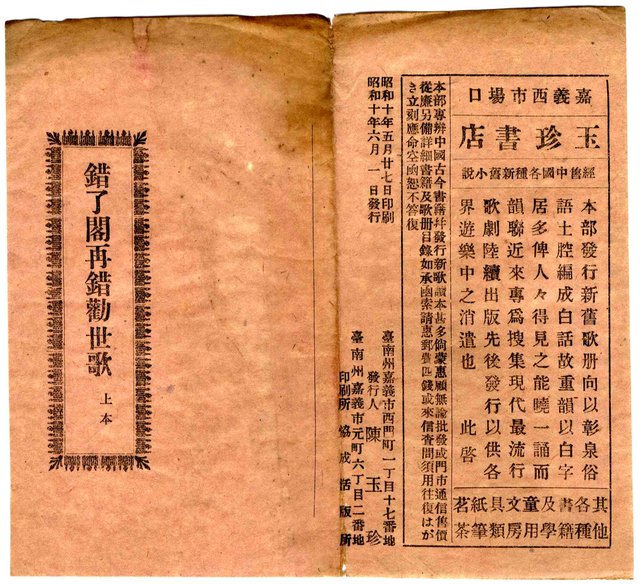 嘉義西市場口
玉珍書店
經售中國各種新舊小說
本部發行新舊歌册向以彰泉俗
語土腔編成白話故重韻以白字
居多俾人々得見之能曉一誦而
韻聯近來專爲搜集現代最流行
歌劇陸續出版先後發行以供各
界遊樂中之消遣也 此啓
其他各種書籍及學童用文房具類紙筆茗茶
本部專辦中國古今書籍幷發行新歌讀本甚多倘蒙惠顧無論批發或門市通信售價
從廉另備詳細書籍及歌册目錄如承函索請惠郵費匹錢或來信查問須用往復はが
き立刻應命空函恕不答復
昭和十年五月廿七日印刷
昭和十年六月一日發行
臺南州嘉義市西門町一丁目十七番地
發行人 陳玉珍
臺南州嘉義市元町六丁目二番地
印刷所 協成活版所
錯了閣再錯勸世歌 上本